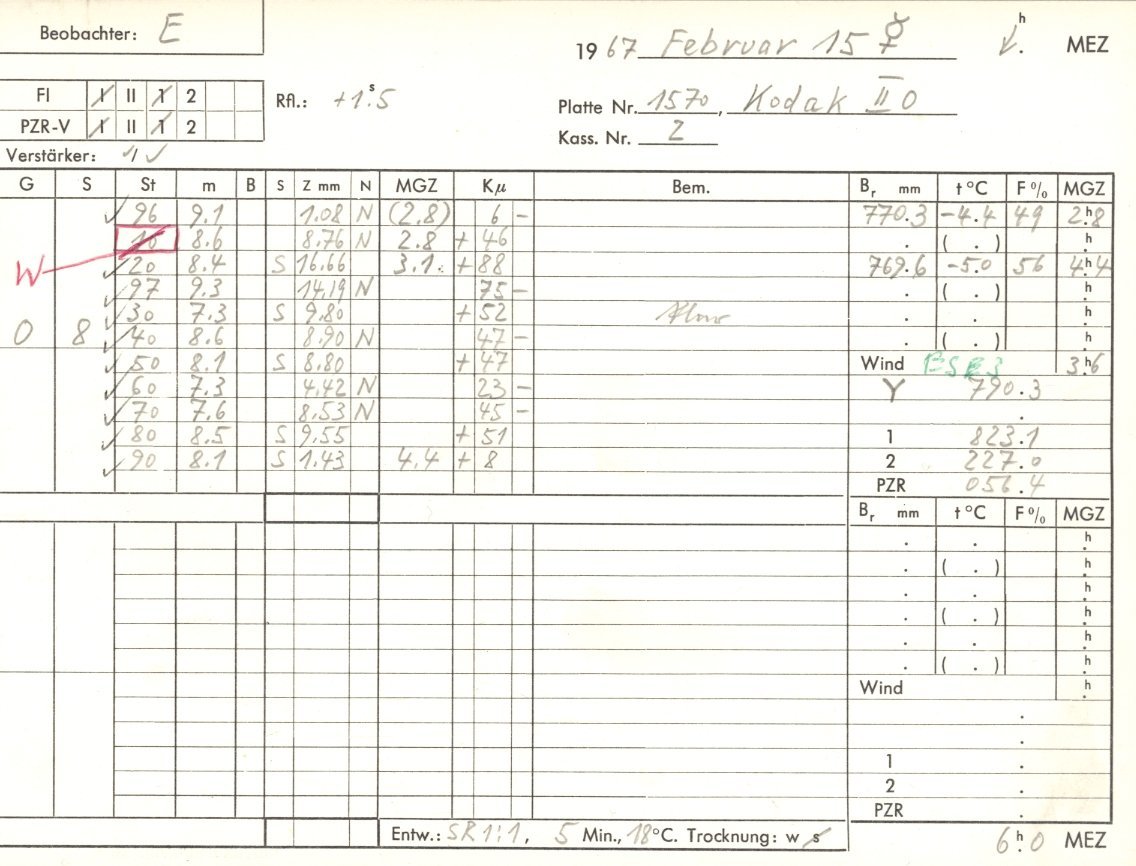 Beobachter: E
1967 Februar 15 ☿ h . MEZ
FI I II 1 2
PZR-V I II 1 2
Rfl.: +1.ˢ5
Platte Nr. 1570, Kodak II 0
Kass. Nr. 2
Verstärker: √/√
G S St m B S Z mm N MGZ Kµ Bem. Bᵣ mm t °C F% MGZ
96 9.1 1.08 N (2.8) 6 – 770.3 -4.4 49 2.ʰ8
10 8.6 8.76 N 2.8 + 46 . ( . ) .ʰ
W 20 8.4 S 16.66 3.1 + 88 769.6 -5.0 56 4.ʰ4
97 9.3 14.19 N 75 – . ( . ) .ʰ
30 7.3 S 9.80 + 52 . . .ʰ
0 8 40 8.6 8.90 N 47 – . ( . ) .ʰ
50 8.1 S 8.80 + 47 Wind 3.ʰ6
60 7.3 4.42 N 23 – Y 790.3
70 7.6 8.53 N 45 – .
80 8.5 S 9.55 + 51 1 823.1
90 8.1 S 1.43 4.4 + 8 2 227.0
PZR 056.4
Bᵣ mm t °C F% MGZ
. . .ʰ
. ( . ) .ʰ
. . .ʰ
. ( . ) .ʰ
. . .ʰ
. ( . ) .ʰ
Wind .ʰ
.
.
1 .
2 .
PZR .
Entw.: SR 1:1, 5 Min., 18°C. Trocknung: w s
6.ʰ0 MEZ